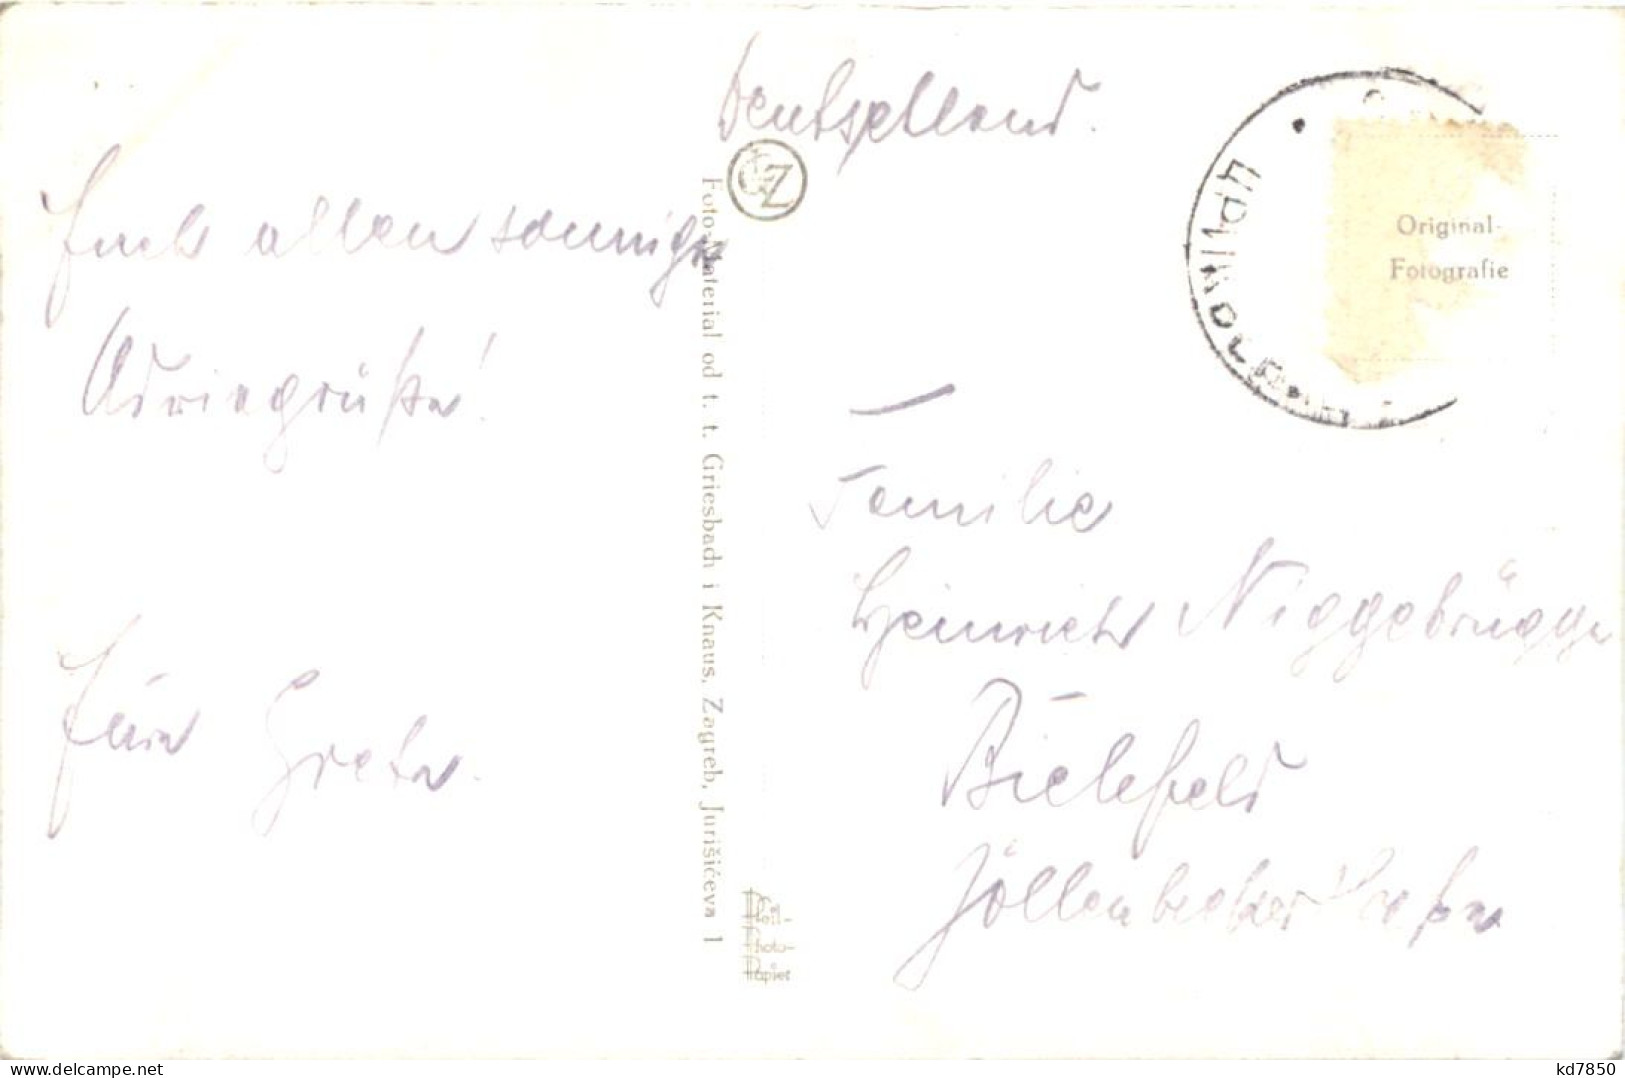 Deutschland.
Euch allen sonnige
Adriagrüße!
Eure Grete.
Foto-Material od t. t. Griesbach i Knaus, Zagreb, Jurišićeva 1
Post-
Photo-
Papier
Original-
Fotografie
Familie
Heinrich Niggebrügge
Bielefeld
Jöllenbecker Straße
delcampe.net
kd7850